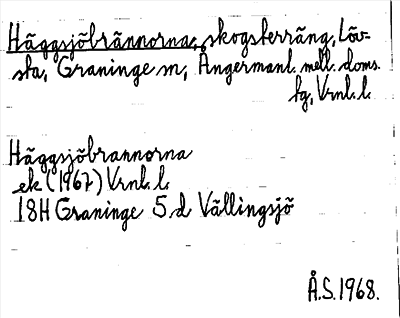 Häggsjöbrännorna, skogsterräng, Löv-
sta, Graninge sn, Ångermanl. mell. doms.
tg, Vrnl. l.
Häggsjöbrannorna
ek (1967) Vrnl. l.
18H Graninge 5 d Vällingsjö
Å.S. 1968.